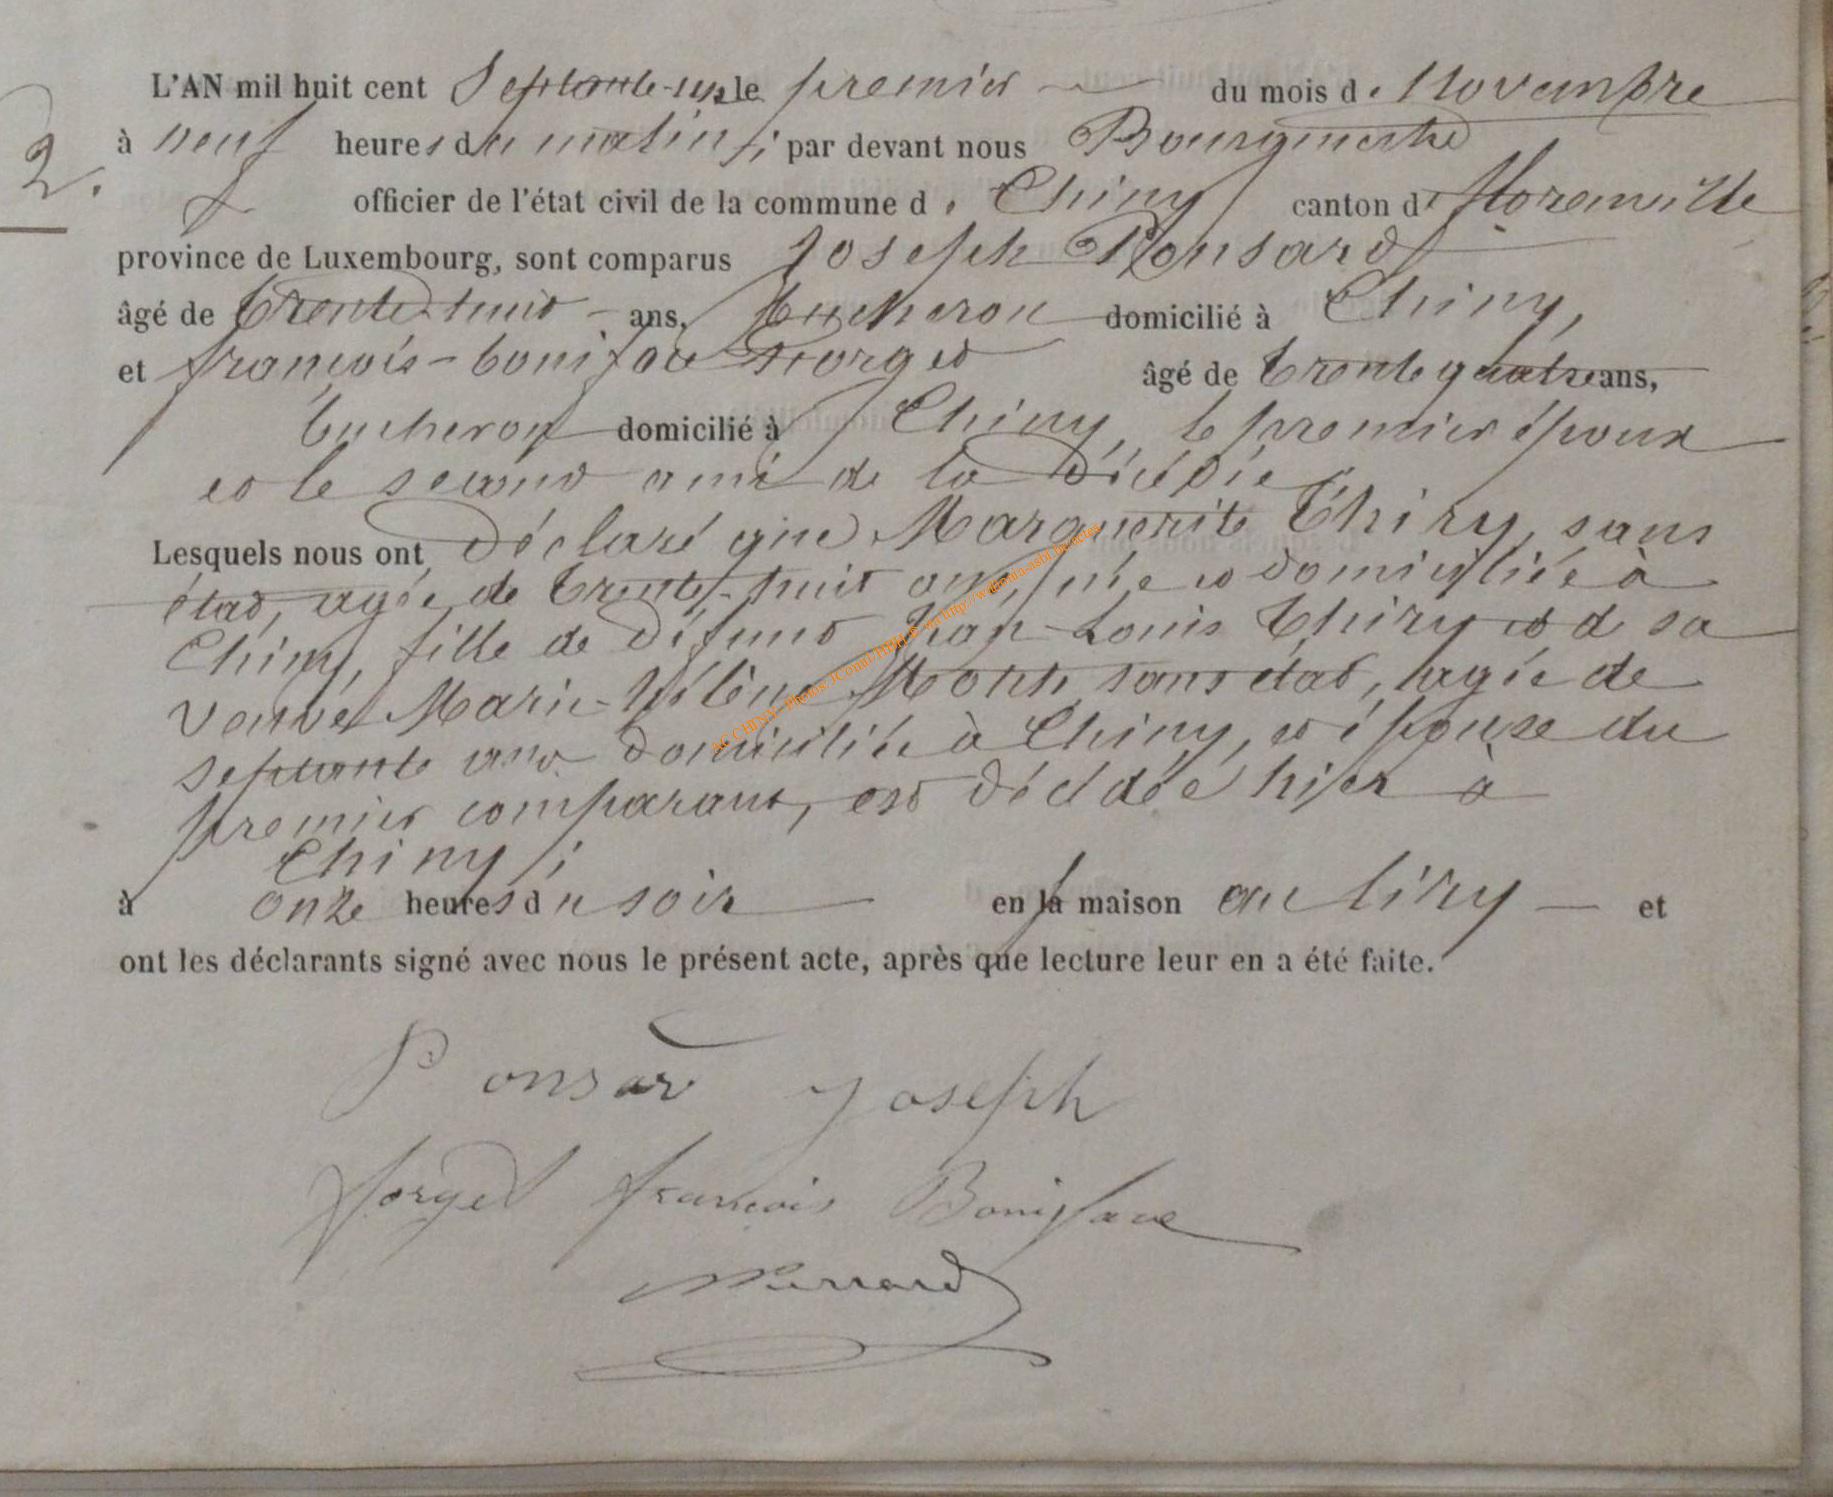 L'AN mil huit cent Septante-un, le premier du mois de Novembre
à neuf heures du matin, par devant nous Bourgmestre
2.
officier de l'état civil de la commune de Chiny canton de Florenville
province de Luxembourg, sont comparus Joseph Ponsard
âgé de trente-huit ans, bucheron domicilié à Chiny,
et françois-boniface Forget âgé de trente quatre ans,
bucheron domicilié à Chiny, le premier époux
et le second ami de la décédée
Lesquels nous ont déclaré que Marguerite Thiry, sans
état, agée de trente-huit ans, née et domiciliée à
Chiny, fille de défunt Jean-Louis Thiry et de sa
veuve Marie-hélène sans état, agée de
septante ans domiciliée à Chiny, et épouse du
premier comparant, est décédée hier à
Chiny,
à onze heures du soir en la maison au liry et
ont les déclarants signé avec nous le présent acte, après que lecture leur en a été faite.
Ponsar Joseph
forget francois Boniface